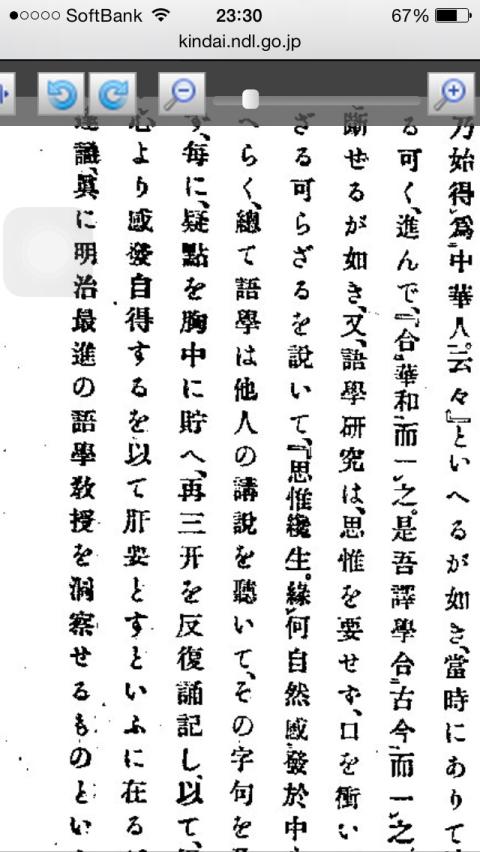 SoftBank 23:30 67%
kindai.ndl.go.jp
乃始得爲中華人云々』といへるが如き、當時にありて
る可く、進んで、『合華和而一之。是吾譯學合古今而一之
斷せるが如き、又、語學研究は、思惟を要せず、口を衝い
ざる可らざるを說いて、『思惟纔生。緣何自然感發於中
へらく、總て語學は他人の講說を聽いて、その字句を
ず、每に、疑點を胸中に貯へ、再三幵を反復誦記し、以て、
心より感發自得するを以て肝要とすといふに在る
達議、眞に明治最進の語學敎授を洞察せるものとい